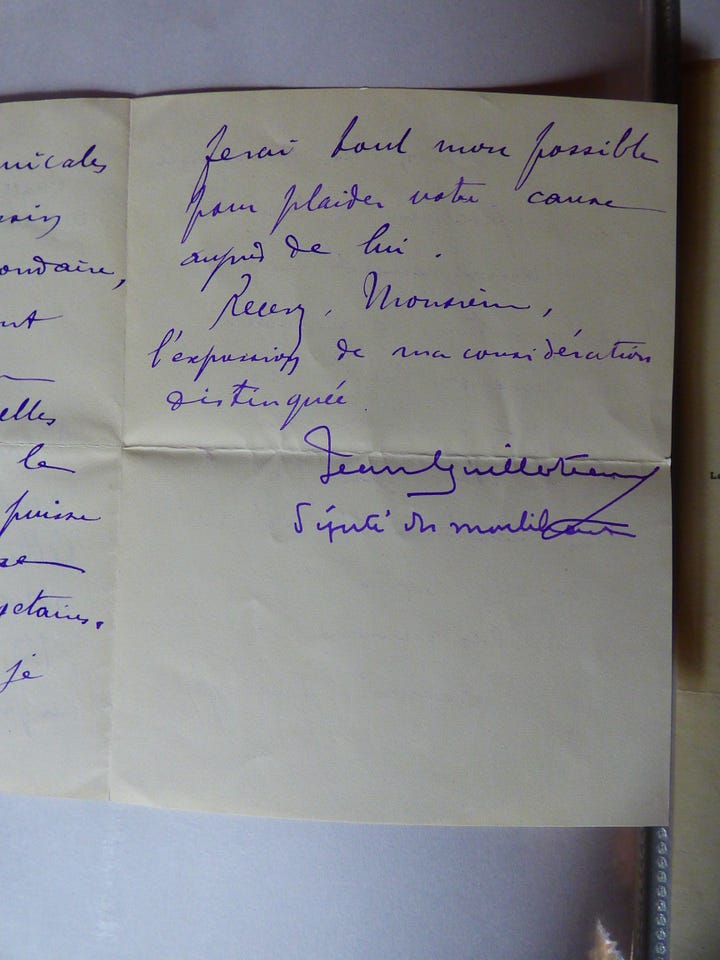 micales
ondaire,
elles
le
puisse
je
ferai tout mon possible
pour plaider votre cause
auprès de lui.
Recevez, Monsieur,
l'expression de ma considération
distinguée.
Jean Guilloteaux
Député du Morbihan